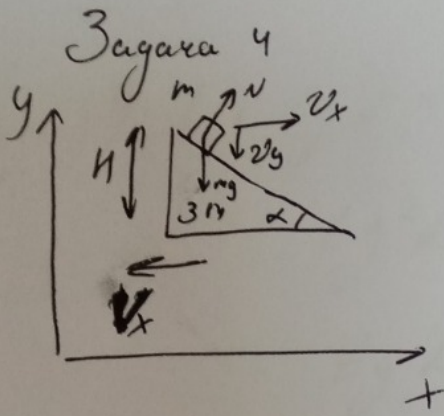 Задача 4
m N
y vx
H vy
mg
3m α
Vx
x